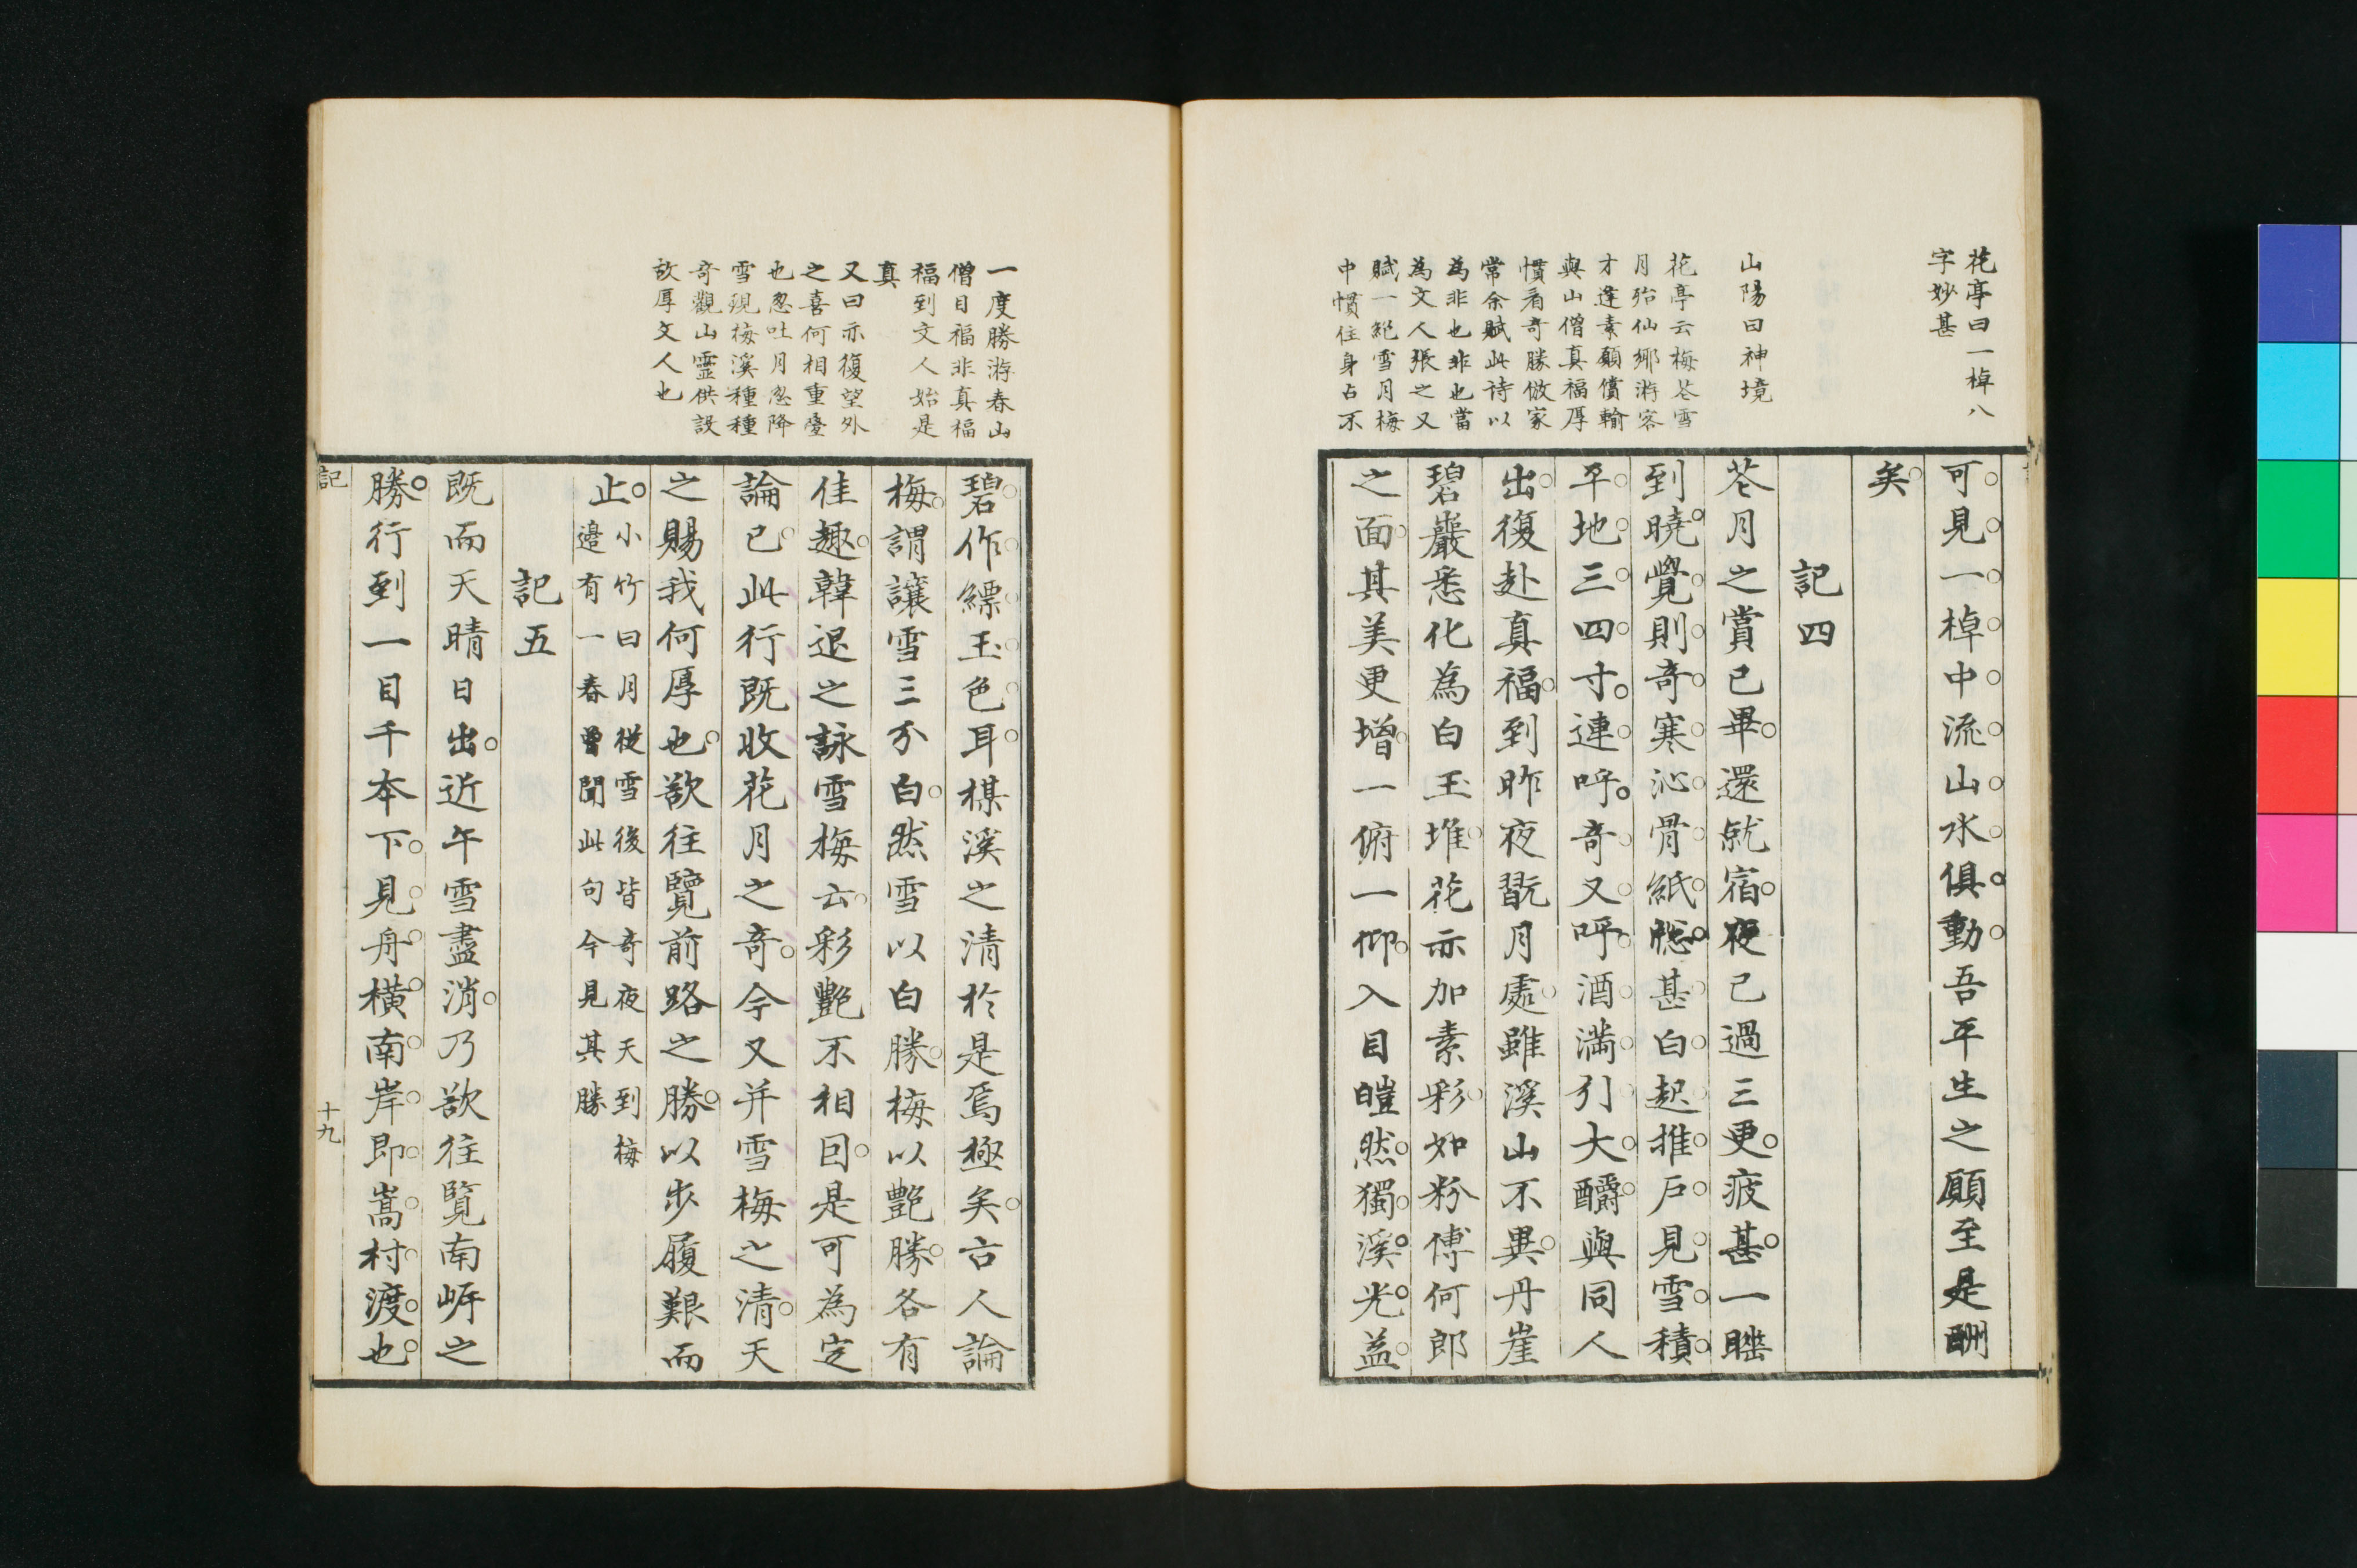 花亭曰一棹八
字妙甚
山陽曰神境
花亭云梅花雪
月殆仙鄉游客
才逢素願償輸
與山僧真福厚
慣看奇勝倣家
常余賦此詩以
為非也非也當
為文人張之又
賦一絕雪月梅
中慣住身占不
可見一棹中流山水俱動吾平生之願至是酬
矣
記四
花月之賞已畢還就宿夜已過三更疲甚一睡
到曉覺則奇寒沁骨紙窓甚白起推戶見雪積
平地三四寸連呼奇又呼酒滿引大釂與同人
出復赴真福到昨夜翫月處雖溪山不異丹崖
碧巖悉化為白玉堆花亦加素彩如粉傅何郎
之面其美更增一俯一仰入目皚然獨溪光益
一度勝游春山
僧目福非真福
福到文人始是
真
又曰亦復望外
之喜何相重疊
也忽吐月忽降
雪現梅溪種種
奇觀山靈供設
故厚文人也
碧作縹玉色耳楳溪之清於是焉極矣古人論
梅謂讓雪三分白然雪以白勝梅以艷勝各有
佳趣韓退之詠雪梅云彩艷不相因是可為定
論已此行既收花月之奇今又并雪梅之清天
之賜我何厚也欲往覽前路之勝以步履艱而
止小竹曰月從雪後皆奇夜天到梅
邉有一春曾聞此句今見其勝
記五
既而天晴日出近午雪盡消乃欲往覽南岍之
勝行到一目千本下見舟橫南岸即嵩村渡也
記
十九